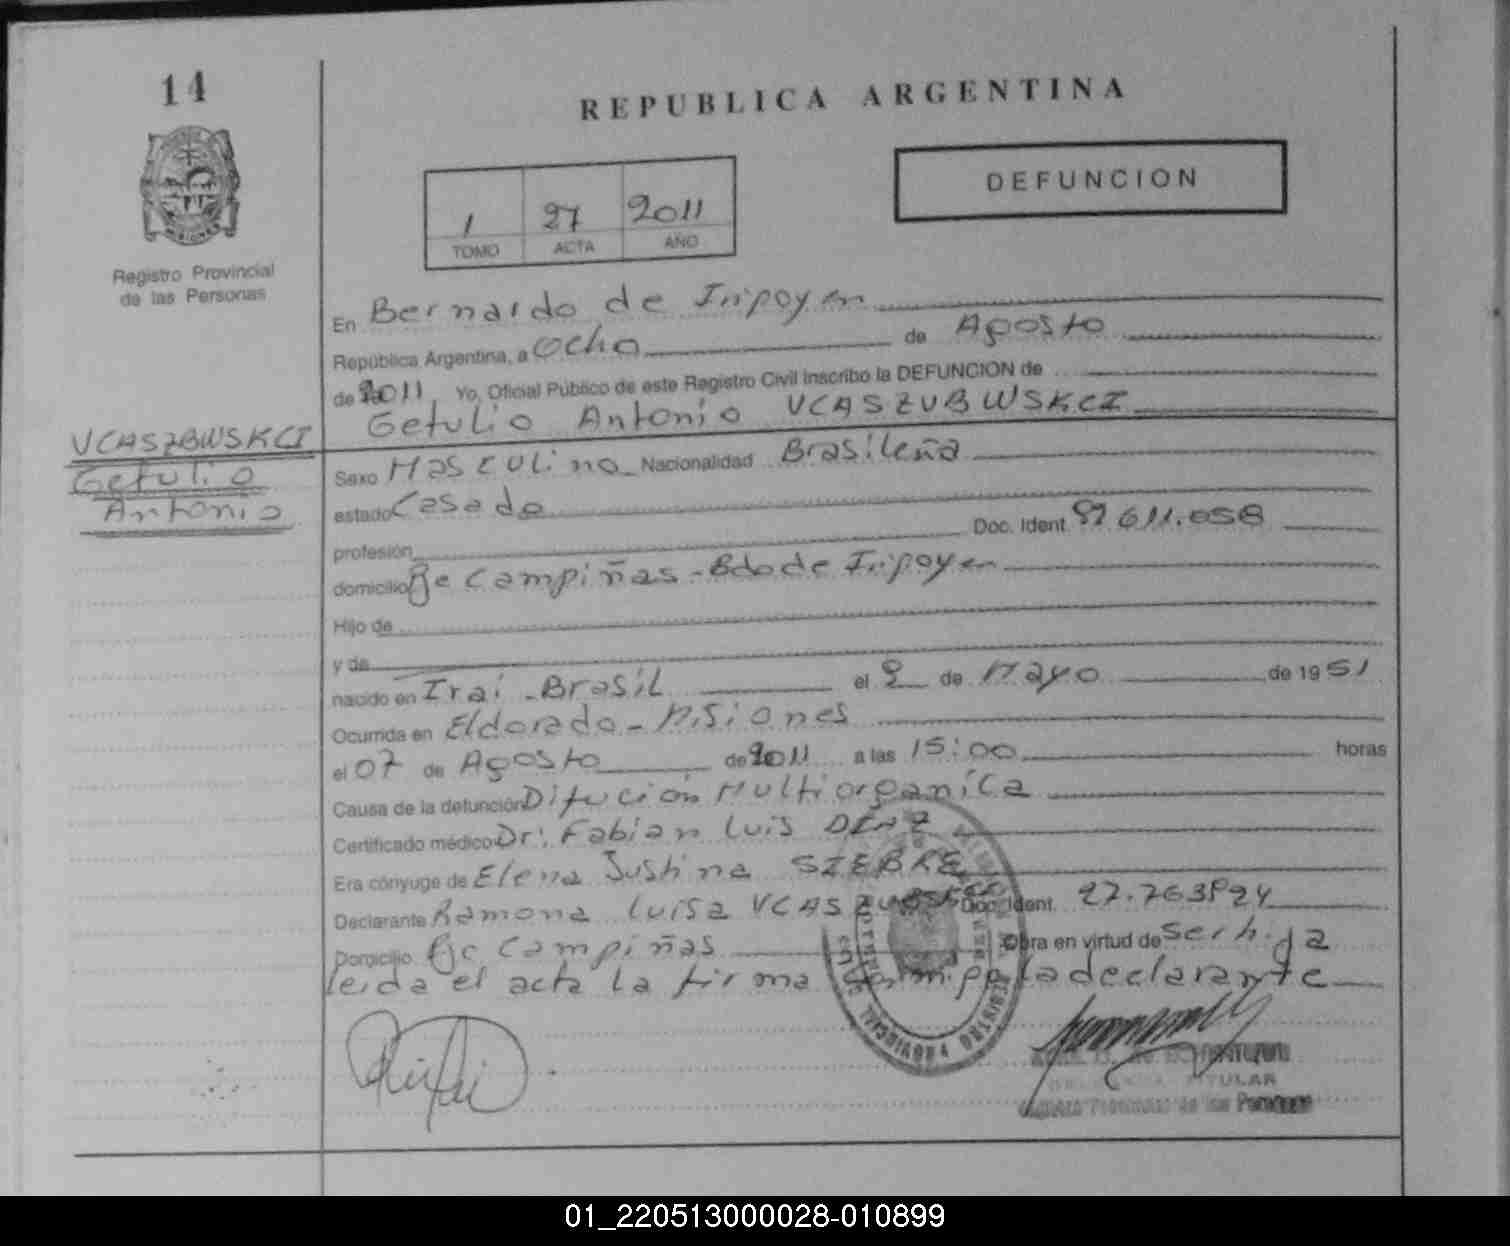 14
REPUBLICA ARGENTINA
DEFUNCION
1 27 2011
TOMO ACTA AÑO
Registro Provincial
de las Personas
En Bernardo de Irigoyen
República Argentina, a ocho de Agosto
de 2011 Yo, Oficial Público de este Registro Civil inscribo la DEFUNCION de
Getulio Antonio VCASZUBWSKCI
VCASZBWSKCI
Getulio
Antonio
Sexo Masculino Nacionalidad Brasileña
estado Casado
profesión Doc. Ident. 92.611.058
domicilio Pje Campiñas - Bdo de Irigoyen
Hijo de
y de
nacido en Irai - Brasil el 2 de Mayo de 1951
Ocurrida en Eldorado - Misiones
el 07 de Agosto de 2011 a las 15:00 horas
Causa de la defunción Difución Multiorganíca
Certificado médico Dr: Fabian Luis DIAZ
Era cónyuge de Elena Justina SZEBKE
Declarante Ramona Luisa Doc. Ident.
Domicilio Pje Campiñas Obra en virtud de ser h.ja
leida el acta la firma la declarante
REGISTRO PROVINCIAL
TITULAR
Provincial de las Personas
01_220513000028-010899